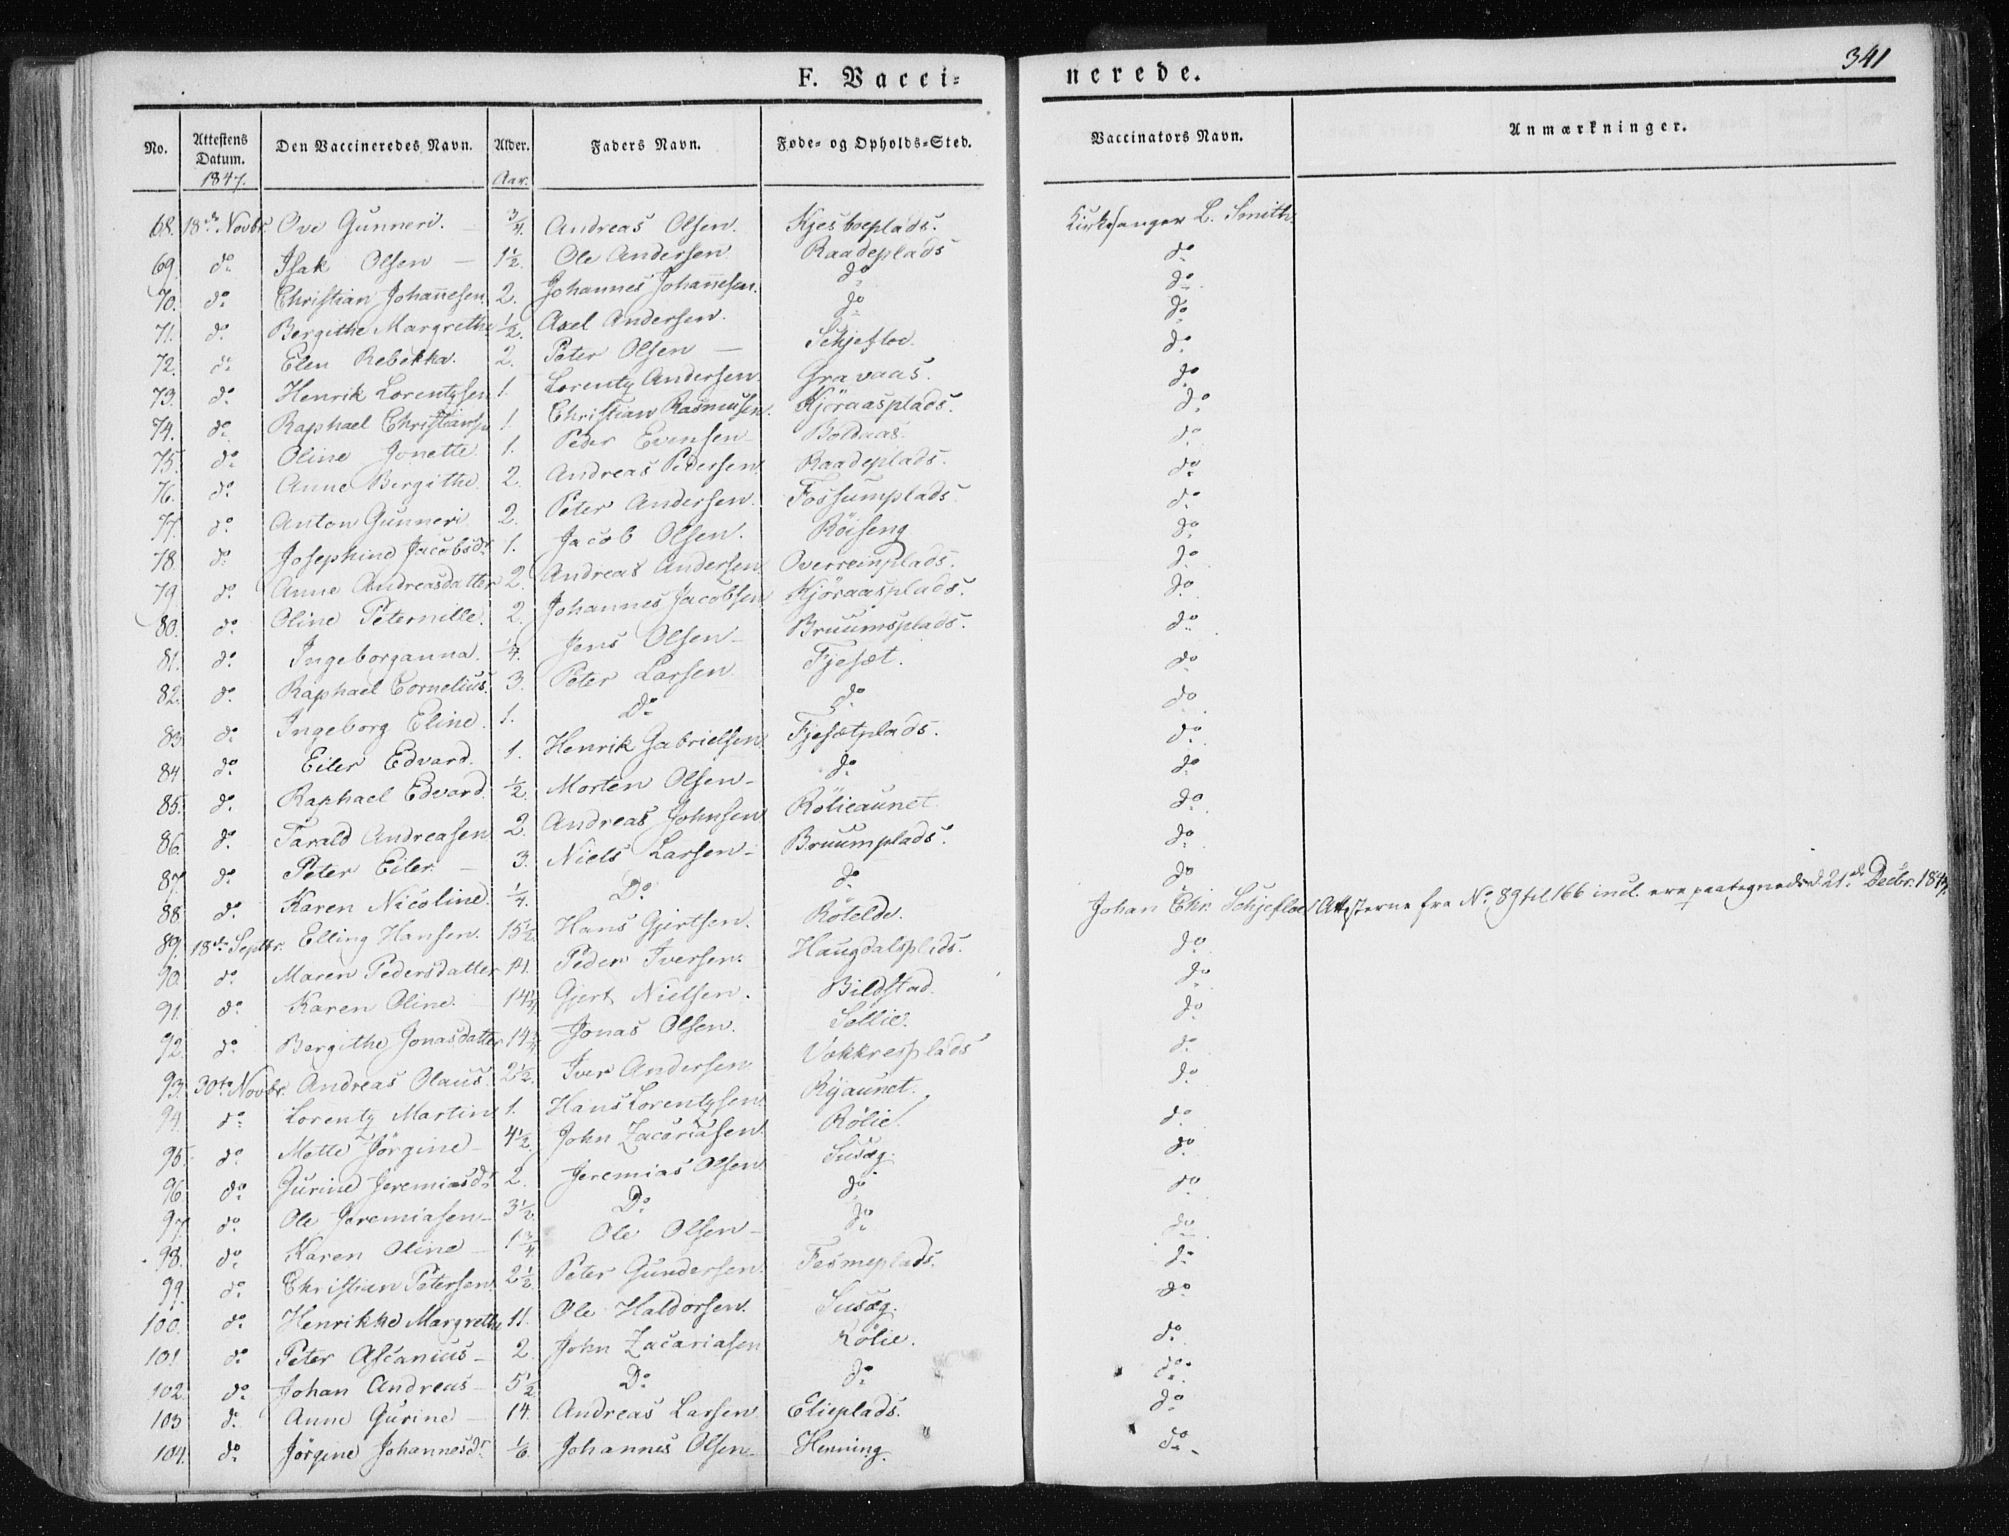 341
F. Vacci= nerede.
No. Attestens Datum. 1847. Den Vaccineredes Navn. Alder. Aar. Faders Navn. Føde- og Opholds=Sted. Vaccinators Navn. Anmærkninger.
68. 18de Novbr. Ove Gunneri. 3/4. Andreas Olsen. Kjesboeplads. Kirkesanger L. Smith.
69. do Isak Olsen — 1 1/2. Ole Andersen. Raadeplads do
70. do Christian Johannesen. 2. Johannes Johannesen. do do
71. do Bergithe Margrethe 1/2. Axel Andersen. do do
72. do Elen Rebekka. 2. Peter Olsen — Schjefloe. do
73. do Henrik Lorentzsen 1. Lorentz Andersen. Gravaas. do
74. do Raphael Christiansen 1. Christian Rasmussen. Kjöraasplads. do
75. do Oline Jonette. 1. Peder Evensen — Boldaas. do
76. do Anne Bergithe. 2. Andreas Pedersen. Raadeplads. do
77. do Anton Gunneri 2. Peter Andersen. Fossumplads. do
78. do Josephine Jacobsdr. 1. Jacob Olsen. Röiseng do
79. do Anne Andreasdatter 2. Andreas Andersen. Overreinplads. do
80. do Oline Peternille. 2. Johannes Jacobsen Kjöraasplads. do
81. do Ingeborganna. 1/4. Jens Olsen — Bruumsplads. do
82. do Raphael Cornelius. 3. Peter Larsen Fjesæt. do
83. do Ingeborg Eline. 1. Do do do
84. do Eiler Edvard. 1. Henrik Gabrielsen. Fjesætplads. do
85. do Raphael Edvard. 1/2. Morten Olsen — do do
86. do Tarald Andreasen 2. Andreas Johnsen Rölieaunet. do
87. do Peter Eiler — 3. Niels Larsen — Bruumplads. do
88. do Karen Nicoline. 1/4. Do do do
89. 18de Septbr. Elling Hansen. 15 1/2. Hans Gjertsen. Rötelde. Johan Chr. Schjefloe Attesterne fra No 89 til 166 incl. ere paategnede d. 21de Decbr. 1847.
90. do Maren Pedersdatter 14. Peder Iversen. Haugdalsplads. do
91. do Karen Oline. — 14 1/4 Gjert Nielsen. Bildstad do
92. do Bergithe Jonasdatter 14 3/4 Jonas Olsen. Sollie. do
93. 30te Novbr. Andreas Olaus. 2 1/2. Iver Andersen Vokkresplads do
94. do Lorentz Martin 1. Hans Lorentzsen. Ryaunet. do
95. do Mette Jörgine — 4 1/2. John Zacariasen. Rölie. do
96. do Gurine Jeremiasdr. 2. Jeremias Olsen Susæg. do
97. do Ole Jeremiasen — 3 1/2. Do do do
98. do Karen Oline — 1 3/4 Ole Olsen — do do
99. do Christian Petersen. 2 1/2. Peter Gundersen. Fesmeplads. do
100. do Henrikke Margrethe 11. Ole Haldorsen. Susæg. do
101 do Peter Ascanius — 2. John Zacariasen Rölie. do
102. do Johan Andreas — 5 1/2 Do do do
103 do Anne Gurine — 14. Andreas Larsen Elieplads. do
104. do Jörgine Johannesdr. 1/6. Johannes Olsen — Henning. do